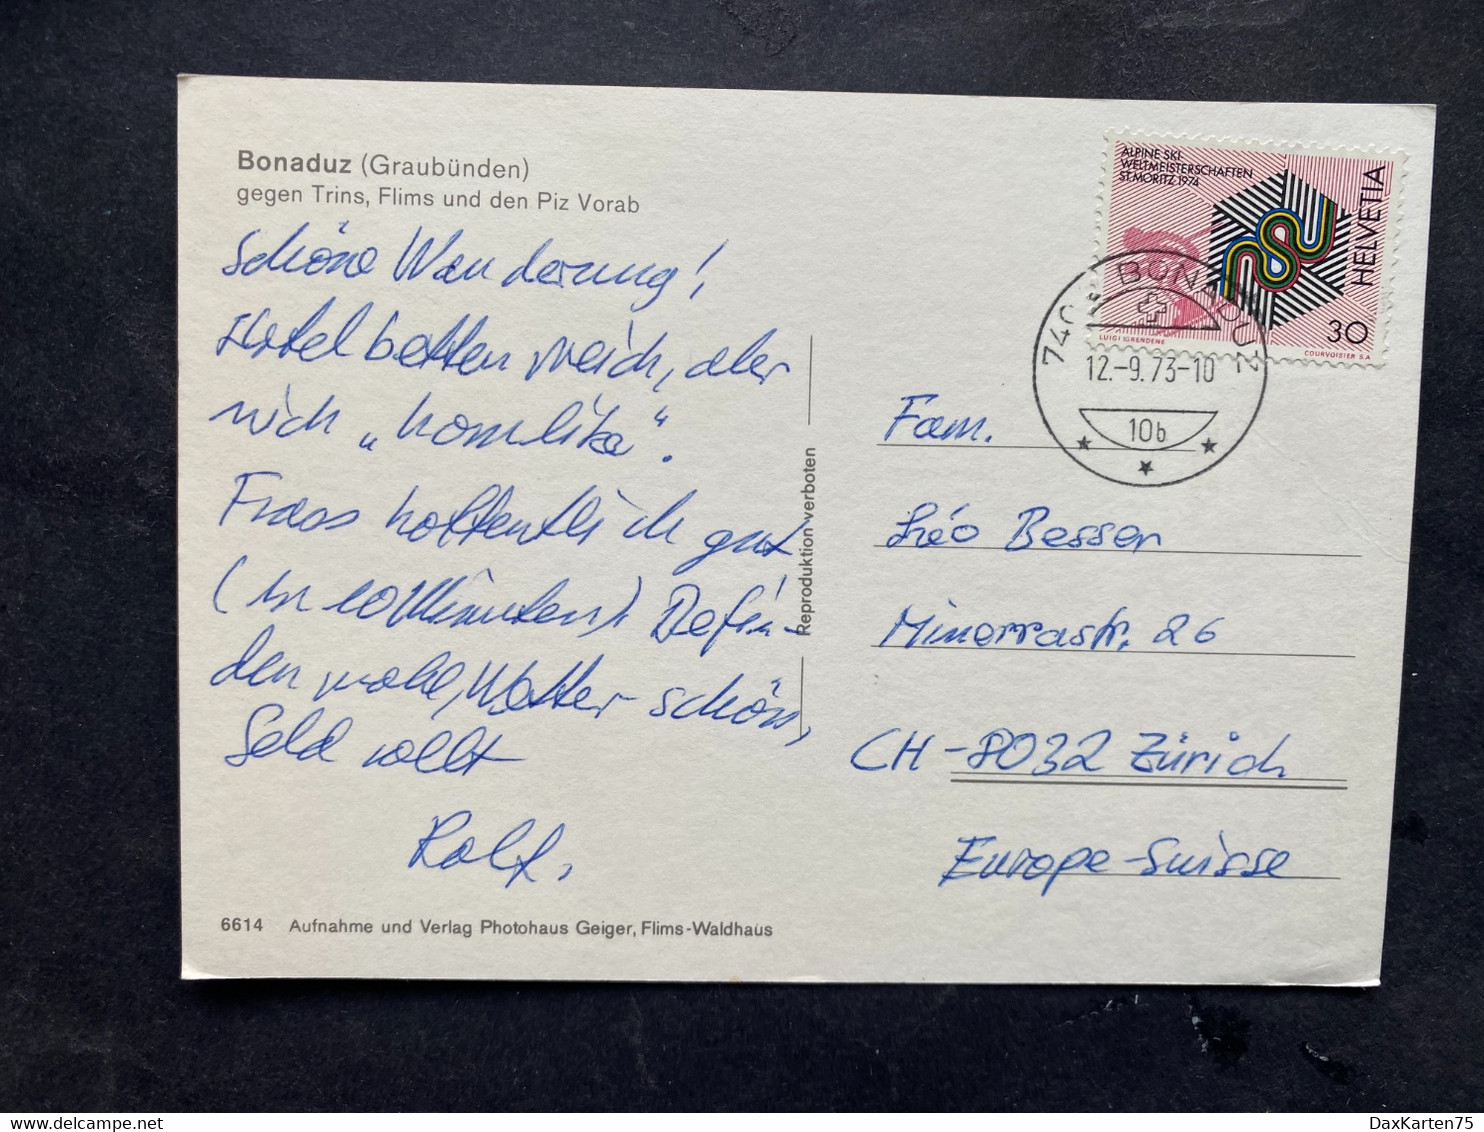 Bonaduz (Graubünden)
gegen Trins, Flims und den Piz Vorab
Schöne Wanderung!
Hotelbetten weich, aber
nich „homlike".
Frass hoffentlich gut
(in 10 Minuten) Befin-
den wohl, Wetter schön,
Geld vollt
Rolf.
6614 Aufnahme und Verlag Photohaus Geiger, Flims-Waldhaus
Reproduktion verboten
ALPINE SKI-
WELTMEISTERSCHAFTEN
ST. MORITZ 1974
HELVETIA
30
LUIGI IGRENDENE
COURVOISIER S.A.
BONADUZ
12.-9.73-10
10b
Fam.
Léo Besser
Minervastr. 26
CH-8032 Zürich
Europe-Suisse
DaxKarten75